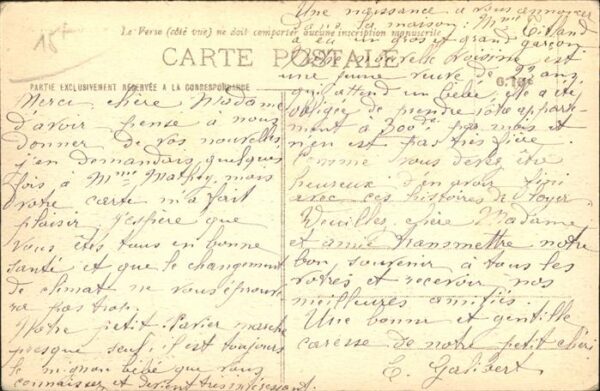 15f
Le Verso (côté vue) ne doit comporter aucune inscription manuscrite
CARTE POSTALE
PARTIE EXCLUSIVEMENT RÉSERVÉE A LA CORRESPONDANCE
Merci, chère Madame
d'avoir pensé à nous
donner de vos nouvelles
j'en demandais quelques
fois à Mme mais
votre carte m'a fait
plaisir. J'espère que
vous êtes tous en bonne
santé et que le changement
de climat ne vous éprouve
ra pas trop.
Notre petit Xavier marche
presque seul, il est toujours
le mignon bébé que vous
connaissez et devient très intéressant.
Une naissance à vous annoncer
dans la maison: Mme
a eu un gros et grand garçon.
nouvelle voisine est
une jeune veuve de ans
qui attend un bébé, elle a été
obligée de prendre apparte-
ment à 300 par mois et
n'en est pas très fière.
Comme vous devez être
heureux d'en avoir fini
avec ces histoires de loyer
Veuillez, chère Madame
et amie transmettre notre
bon souvenir à tous les
vôtres et recevoir nos
meilleures amitiés.
Une bonne et gentille
caresse de notre petit chéri
E. Galibert